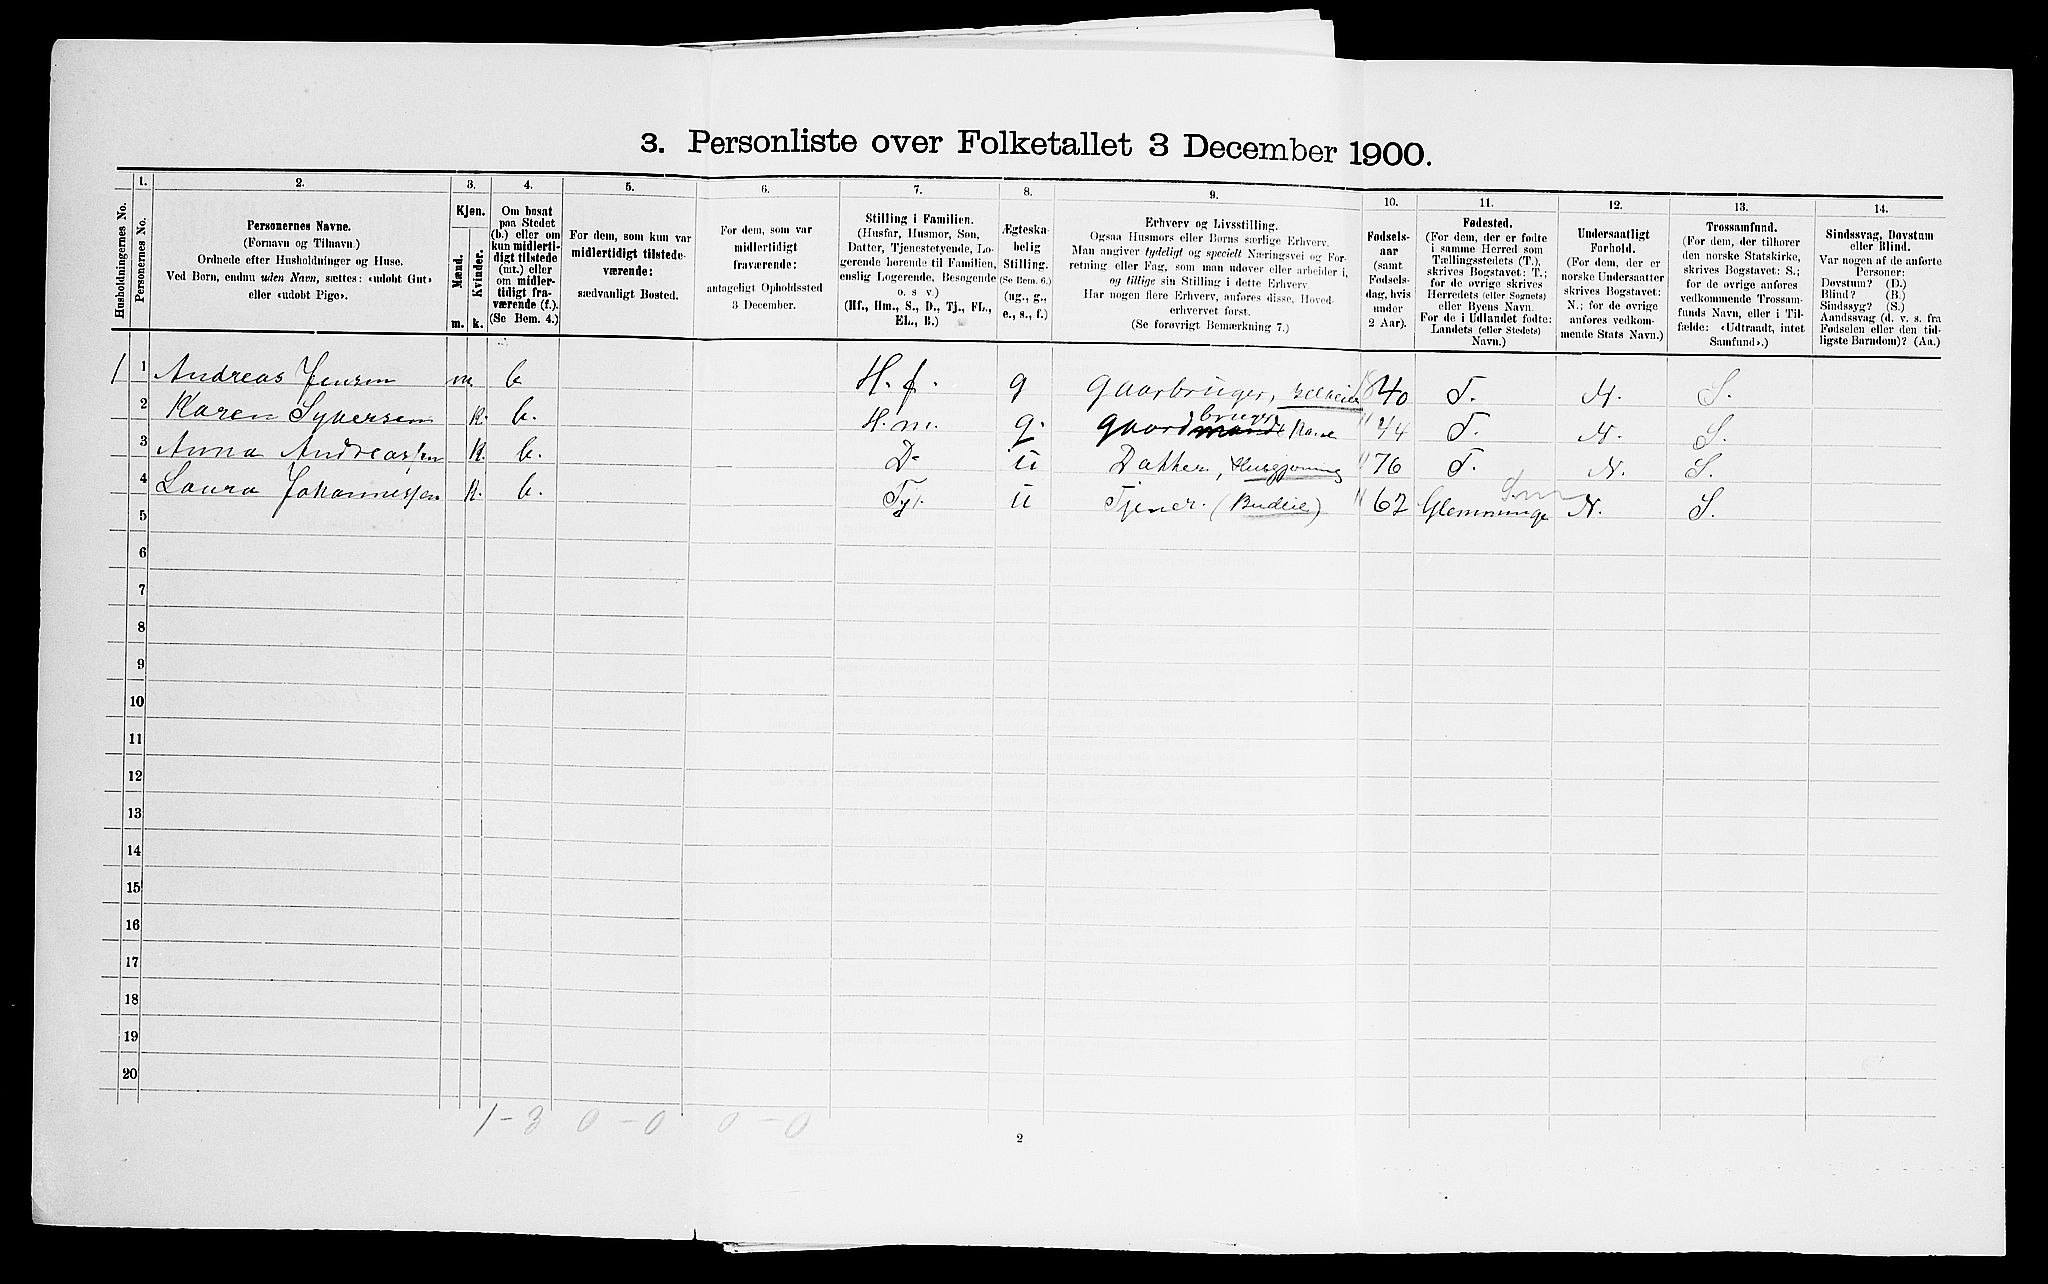 3. Personliste over Folketallet 3 December 1900.
1. 2. 3. 4. 5. 6. 7. 8. 9. 10. 11. 12. 13. 14.
Husholdningernes No.
Personernes No.
Personernes Navne.
(Fornavn og Tilnavn.)
Ordnede efter Husholdninger og Huse.
Ved Børn, endnu uden Navn, sættes: «udøbt Gut»
eller «udøbt Pige».
Kjøn.
Mænd.
Kvinder.
m. k.
Om bosat
paa Stedet
(b.) eller om
kun midlerti-
digt tilstede
(mt.) eller
om midler-
tidigt fra-
værende (f.).
(Se Bem. 4.)
For dem, som kun var
midlertidigt tilstede-
værende:
sædvanligt Bosted.
For dem, som var
midlertidigt
fraværende:
antageligt Opholdssted
3 December.
Stilling i Familien.
(Husfar, Husmor, Søn,
Datter, Tjenestetyende, Lo-
gerende hørende til Familien,
enslig Logerende, Besøgende
o. s. v.)
(Hf., Hm., S., D., Tj., FL.,
EL., B.)
Ægteska-
belig
Stilling.
(Se Bem. 6.)
(ug., g.,
e., s., f.)
Erhverv og Livsstilling.
Ogsaa Husmors eller Børns særlige Erhverv.
Man angiver tydeligt og specielt Næringsvei og For-
retning eller Fag, som man udøver eller arbeider i,
og tillige sin Stilling i dette Erhverv
Har nogen flere Erhverv, anføres disse, Hoved-
erhvervet først.
(Se forøvrigt Bemærkning 7.)
Fødsels-
aar
(samt
Fødsels-
dag, hvis
under
2 Aar).
Fødested.
(For dem, der er fødte
i samme Herred som
Tællingsstedets (T.),
skrives Bogstavet: T.;
for de øvrige skrives
Herredets (eller Sognets)
eller Byens Navn.
For de i Udlandet fødte:
Landets (eller Stedets)
Navn.)
Undersaatligt
Forhold.
(For dem, der er
norske Undersaatter
skrives Bogstavet:
N.; for de øvrige
anføres vedkom-
mende Stats Navn.)
Trossamfund.
(For dem, der tilhører
den norske Statskirke,
skrives Bogstavet: S.;
for de øvrige anføres
vedkommende Trossam-
funds Navn, eller i Til-
fælde: «Udtraadt, intet
Samfund».)
Sindssvag, Døvstum
eller Blind.
Var nogen af de anførte
Personer:
Døvstum? (D.)
Blind? (B.)
Sindssyg? (S.)
Aandssvag (d. v. s. fra
Fødselen eller den tid-
ligste Barndom)? (Aa.)
1 1 Andreas Jensen m b H. f. g gaarbruger, selveier 1840 T. N. S.
2 Karen Syversen K. b. H. m. g. gaardbruger Kone " 44 T. N. S.
3 Anna Andreassen K. b. D u Datter, Husgjerning " 76 T. N. S.
4 Laura Johannessen K. b. Tj. u Tjener. (Budeie) " 62 Glemminge N. S.
5
6
7
8
9
10
11
12
13
14
15
16
17
18
19
20
1 - 3 0 - 0 0 - 0
2